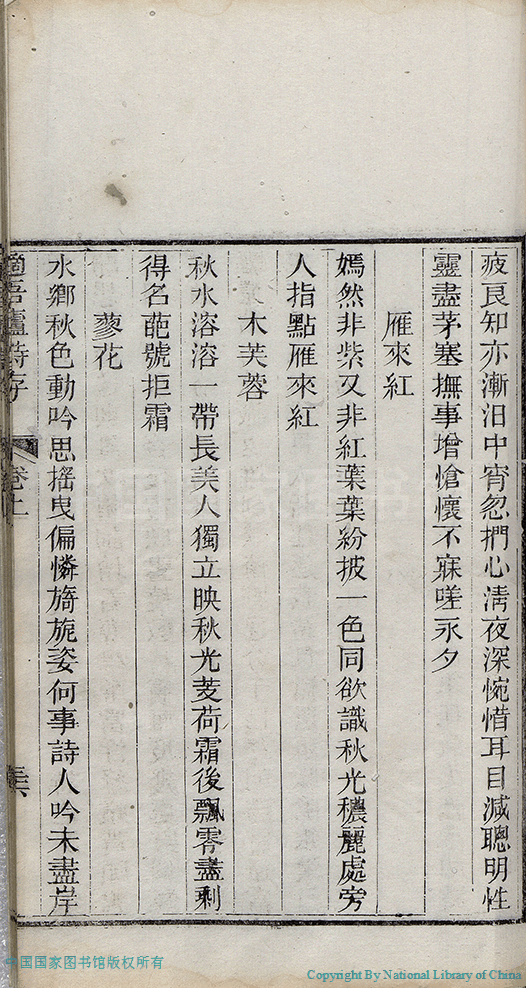 疲良知亦漸汨中宵忽捫心淸夜深惋惜耳目減聰明性
靈盡茅塞撫事增愴懷不寐嗟永夕
雁來紅
嫣然非紫又非紅葉葉紛披一色同欲識秋光穠麗處旁
人指點雁來紅
木芙蓉
秋水溶溶一帶長美人獨立映秋光芰荷霜後飄零盡剩
得名葩號拒霜
蓼花
水鄉秋色動吟思搖曳偏憐旖旎姿何事詩人吟未盡岸
適吾廬詩存 卷上
中国国家图书馆版权所有
Copyright By National Library of China